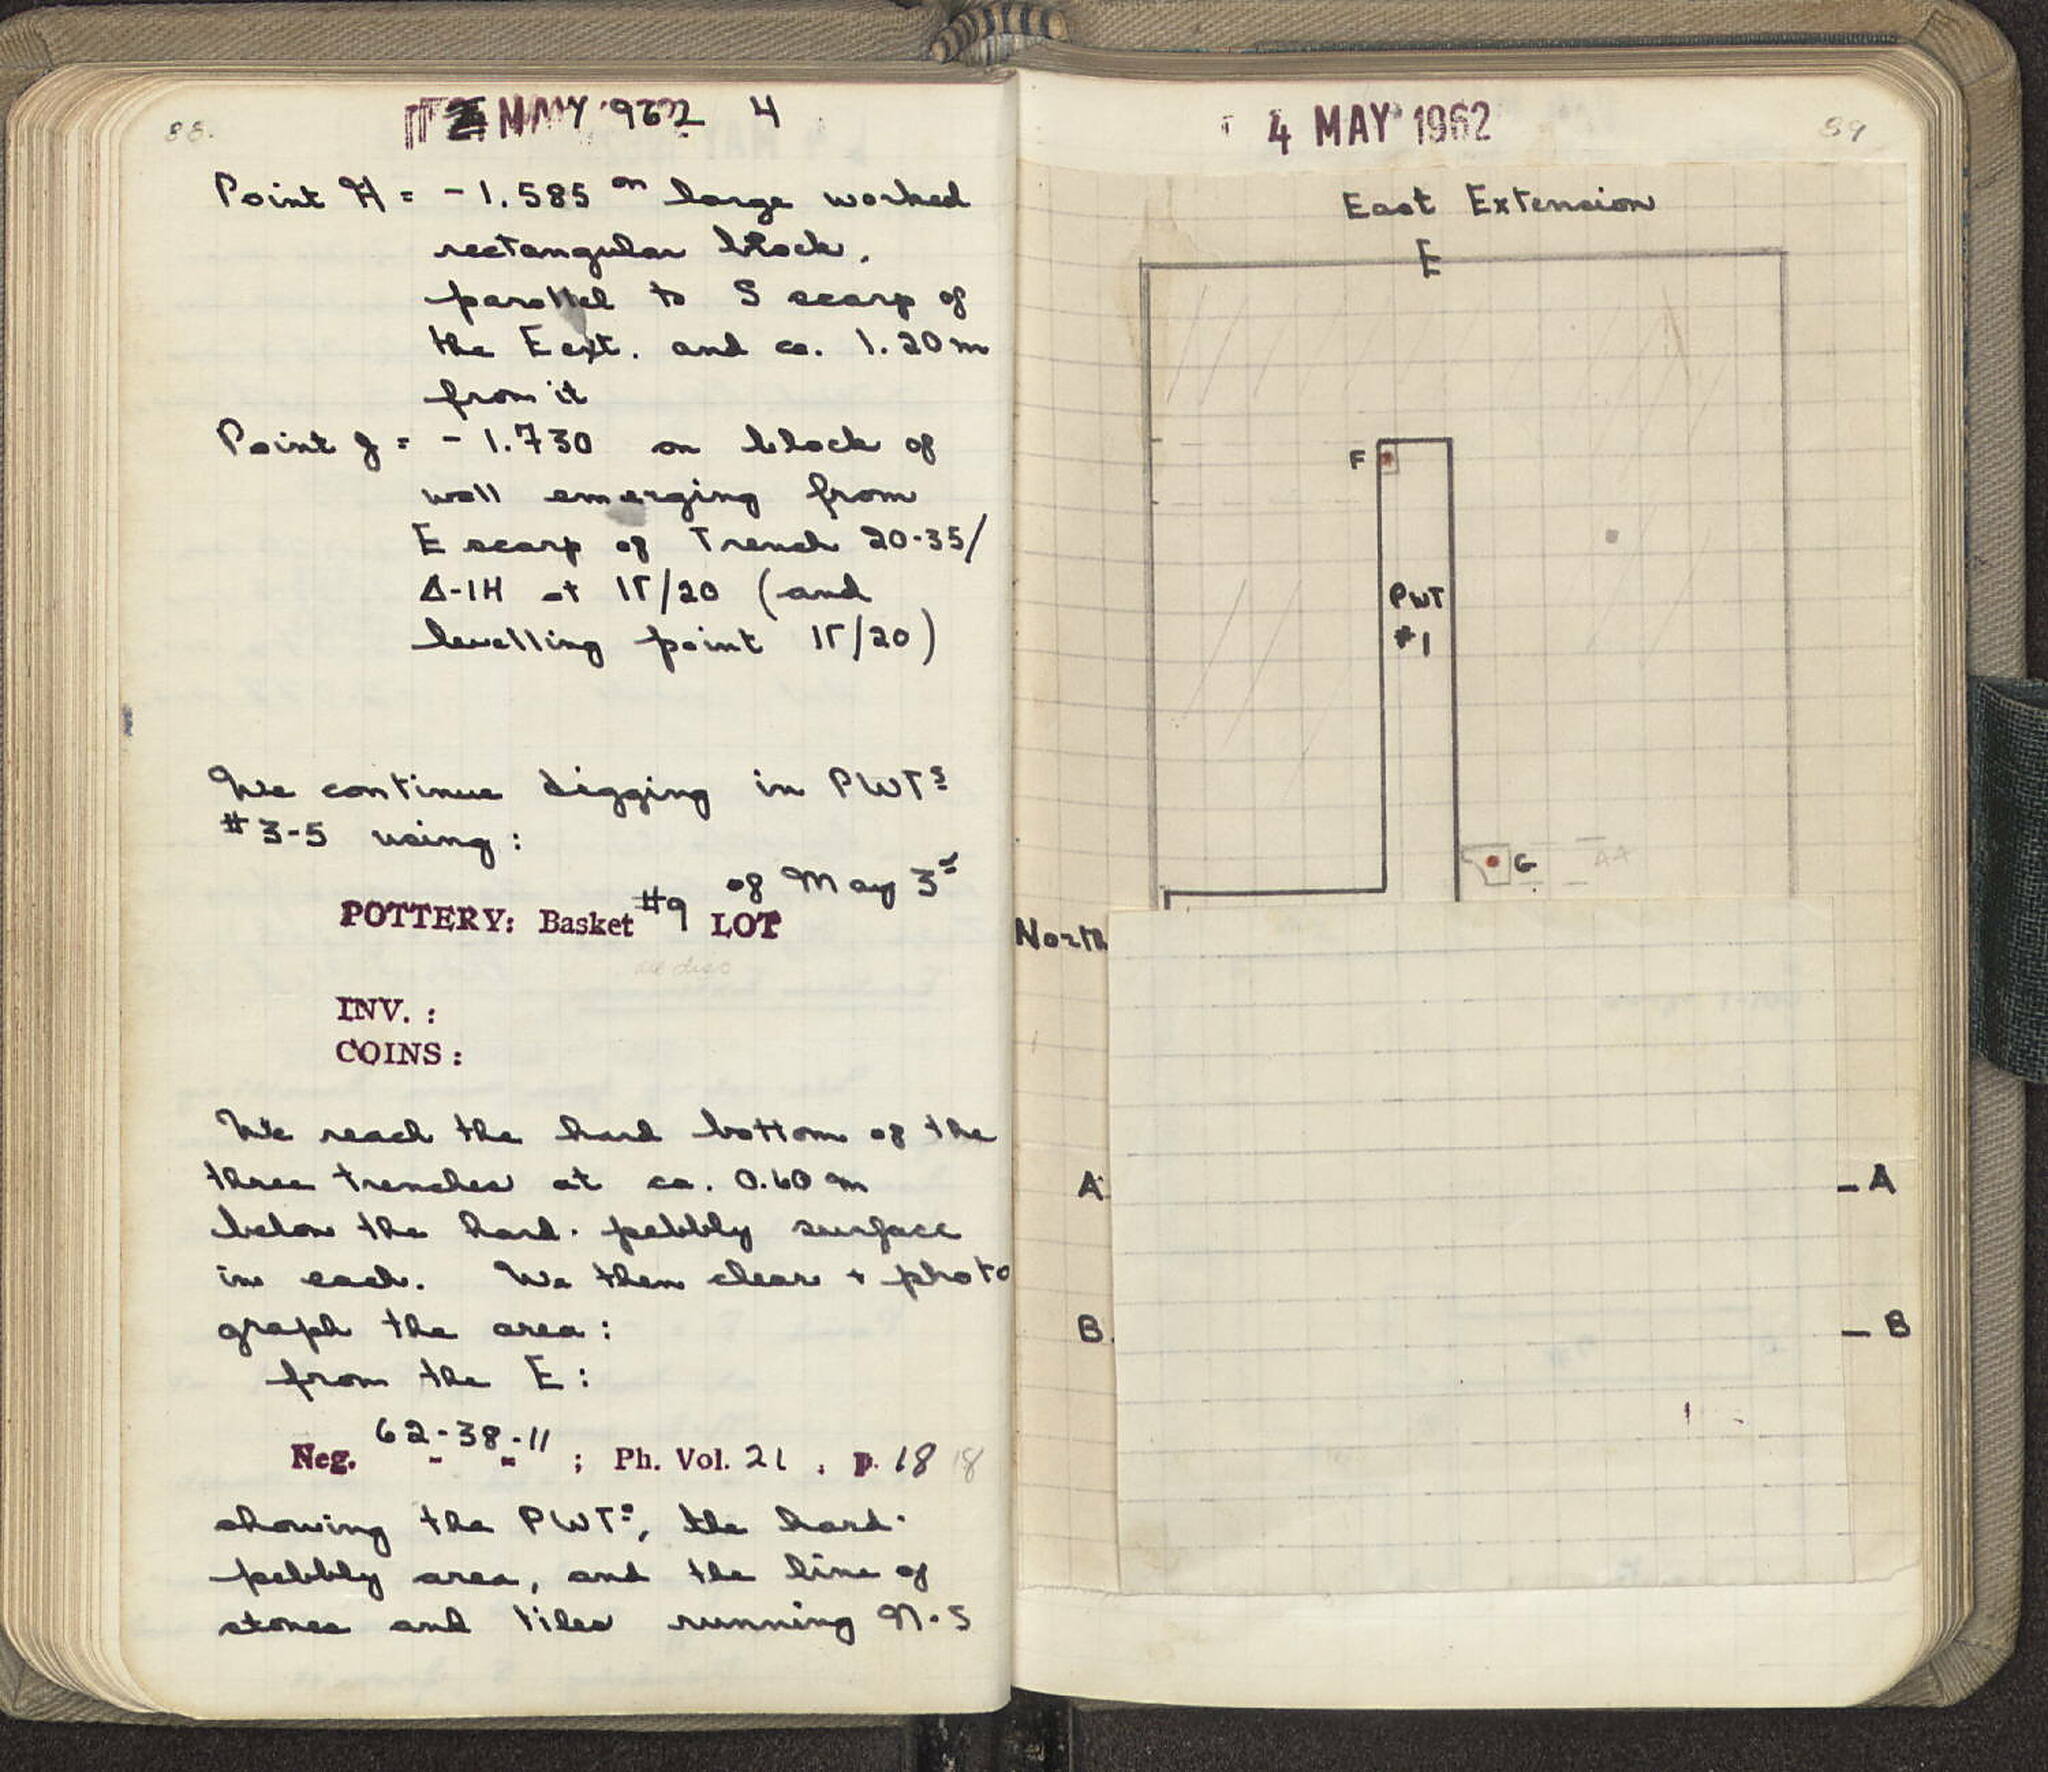 88.
MAY 1962 4
Point H = -1.585 on large worked
rectangular block,
parallel to S scarp of
the E ext. and ca. 1.20m
from it
Point J = -1.730 on block of
wall emerging from
E scarp of Trench 20-35/
Δ-IH at IΓ/20 (and
levelling point IΓ/20)
We continue digging in PWTs
#3-5 using:
of May 3rd
POTTERY: Basket #9 LOT
INV. :
COINS :
We reach the hard bottom of the
three trenches at ca. 0.60m
below the hard-pebbly surface
in each. We then clean + photo
graph the area:
from the E:
Neg. 62-38-11 ; Ph. Vol. 21 , p. 18 18
showing the PWTs, the hard-
pebbly area, and the line of
stones and tiles running N-S
4 MAY 1962
89
East Extension
E
F
PWT
#1
G
AA
North
A
- A
B
- B